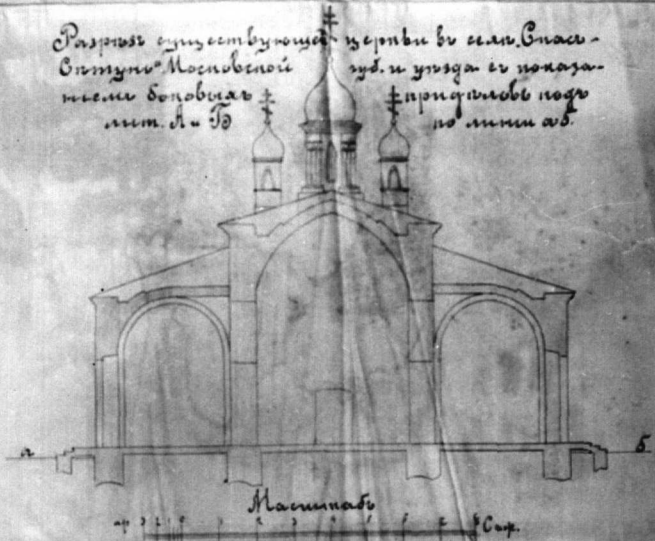 Разрѣзъ существующей церкви въ селѣ Спасъ-
Сѣтунь Московской губ. и уѣзда съ показа-
ніемъ боковыхъ придѣловъ подъ
лит. А и Б по линіи аб.
а б
Масштабъ
Саж.